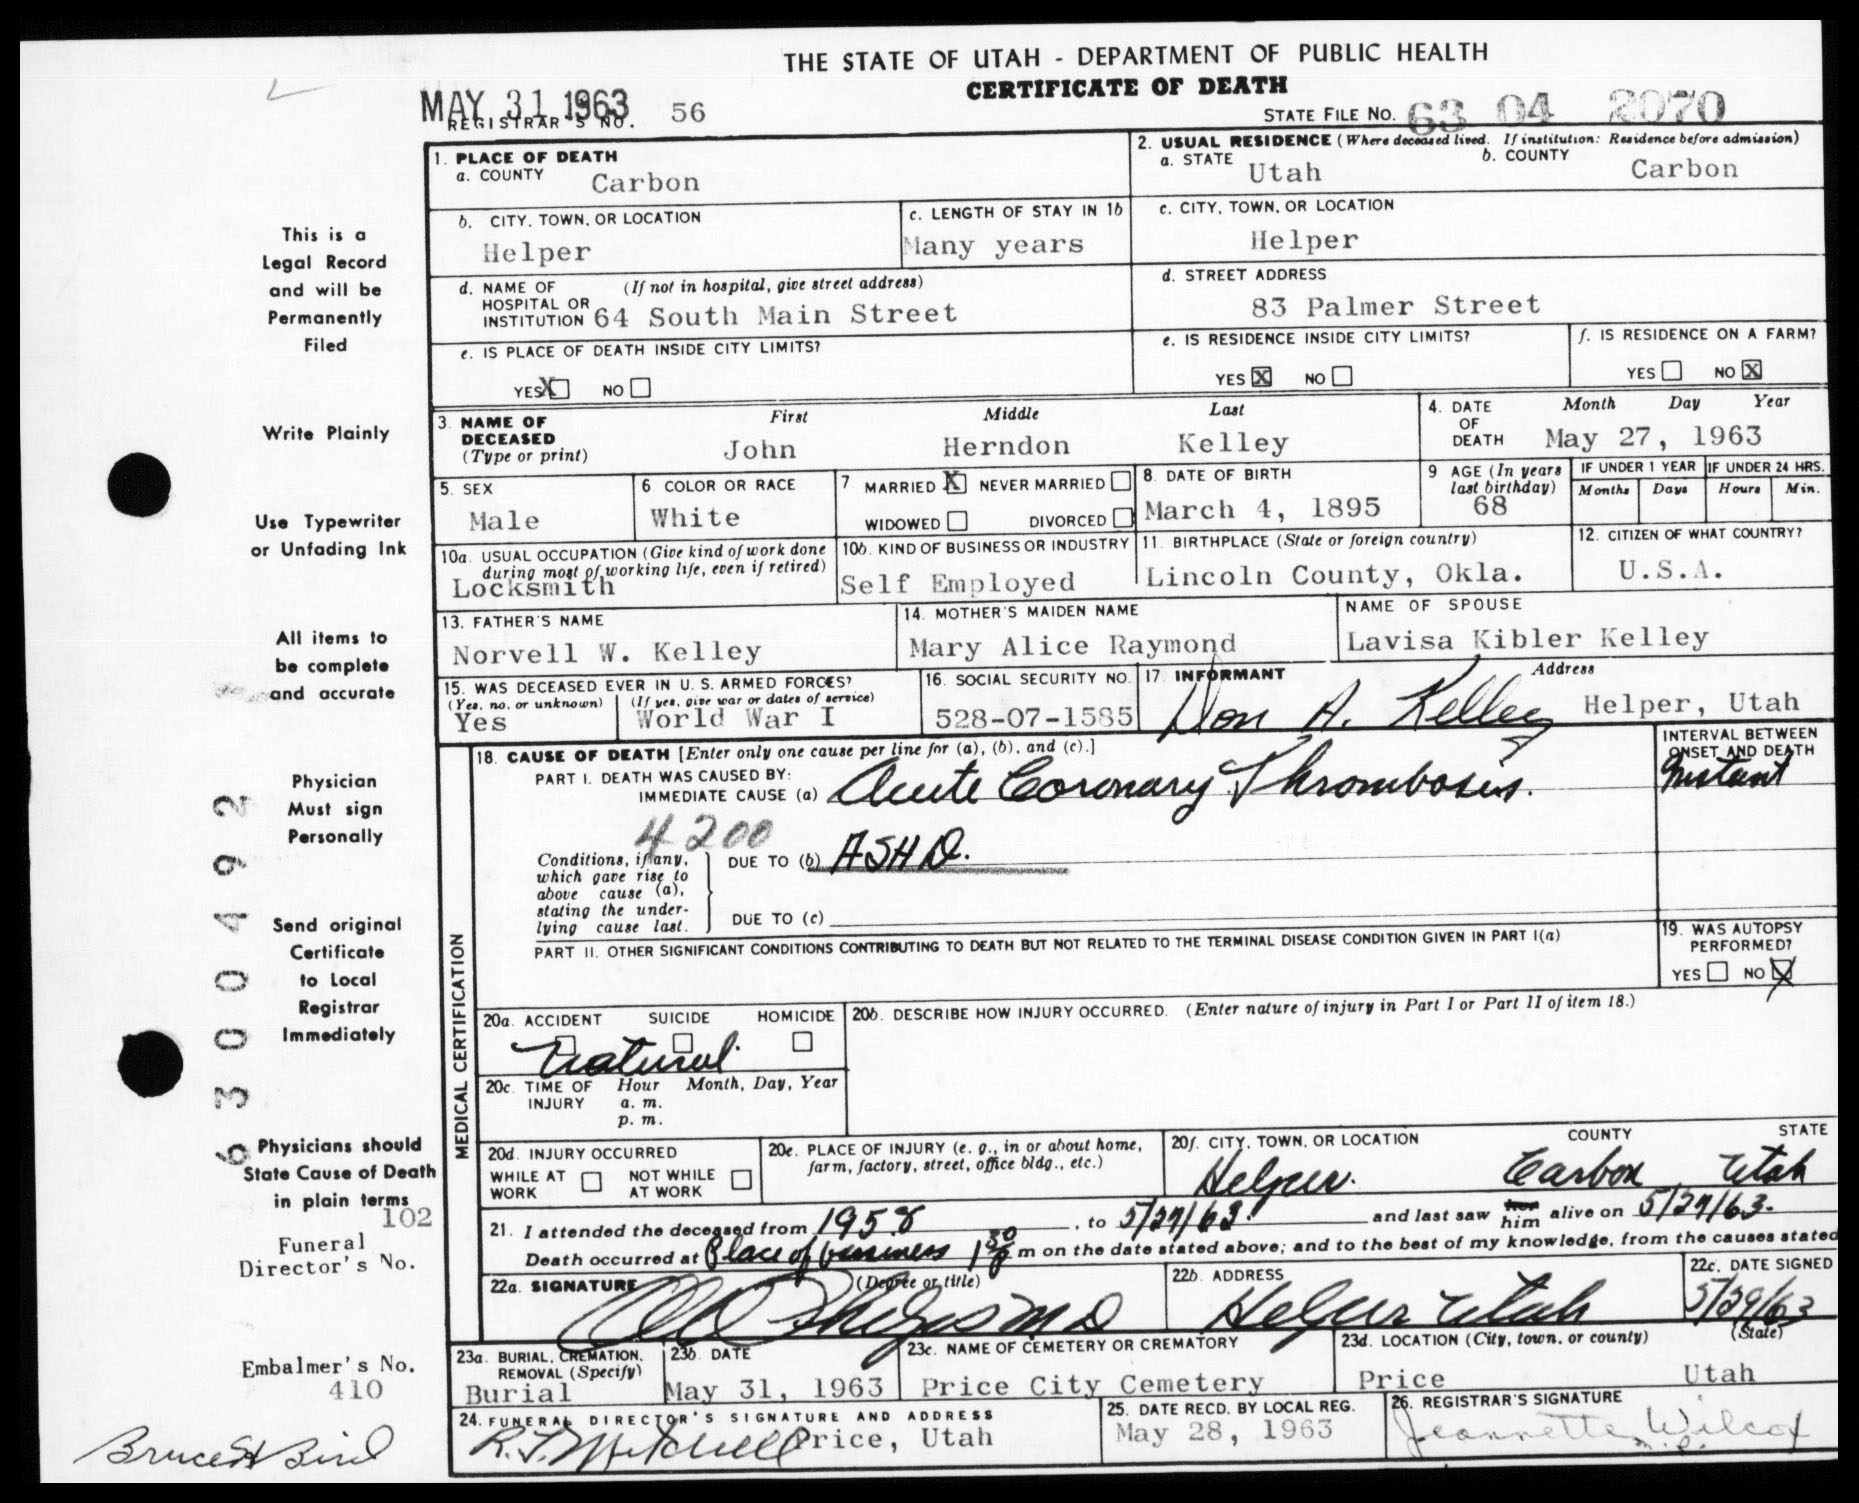 THE STATE OF UTAH - DEPARTMENT OF PUBLIC HEALTH
CERTIFICATE OF DEATH
MAY 31 1963
REGISTRAR'S NO. 56
STATE FILE NO. 63 04 2070
1. PLACE OF DEATH
a. COUNTY Carbon
2. USUAL RESIDENCE (Where deceased lived. If institution: Residence before admission)
a. STATE Utah b. COUNTY Carbon
b. CITY, TOWN, OR LOCATION Helper
c. LENGTH OF STAY IN 1b Many years
c. CITY, TOWN, OR LOCATION Helper
d. NAME OF HOSPITAL OR INSTITUTION (If not in hospital, give street address) 64 South Main Street
d. STREET ADDRESS 83 Palmer Street
e. IS PLACE OF DEATH INSIDE CITY LIMITS?
YES X NO
e. IS RESIDENCE INSIDE CITY LIMITS?
YES X NO
f. IS RESIDENCE ON A FARM?
YES NO X
3. NAME OF DECEASED (Type or print)
First Middle Last
John Herndon Kelley
4. DATE OF DEATH Month Day Year
May 27, 1963
5. SEX Male
6. COLOR OR RACE White
7. MARRIED X NEVER MARRIED
WIDOWED DIVORCED
8. DATE OF BIRTH March 4, 1895
9 AGE (In years last birthday) 68
IF UNDER 1 YEAR Months Days
IF UNDER 24 HRS. Hours Min.
10a. USUAL OCCUPATION (Give kind of work done during most of working life, even if retired)
Locksmith
10b. KIND OF BUSINESS OR INDUSTRY
Self Employed
11. BIRTHPLACE (State or foreign country)
Lincoln County, Okla.
12. CITIZEN OF WHAT COUNTRY?
U.S.A.
13. FATHER'S NAME
Norvell W. Kelley
14. MOTHER'S MAIDEN NAME
Mary Alice Raymond
NAME OF SPOUSE
Lavisa Kibler Kelley
15. WAS DECEASED EVER IN U. S. ARMED FORCES?
(Yes, no, or unknown) (If yes, give war or dates of service)
Yes World War I
16. SOCIAL SECURITY NO.
528-07-1585
17. INFORMANT Address
Don A. Kelley Helper, Utah
MEDICAL CERTIFICATION
18. CAUSE OF DEATH [Enter only one cause per line for (a), (b), and (c).]
PART I. DEATH WAS CAUSED BY:
IMMEDIATE CAUSE (a) Acute Coronary Thrombosis.
INTERVAL BETWEEN ONSET AND DEATH
Instant
4200
Conditions, if any, which gave rise to above cause (a), stating the underlying cause last.
DUE TO (b) ASHD.
DUE TO (c)
PART II. OTHER SIGNIFICANT CONDITIONS CONTRIBUTING TO DEATH BUT NOT RELATED TO THE TERMINAL DISEASE CONDITION GIVEN IN PART I(a)
19. WAS AUTOPSY PERFORMED?
YES NO X
20a. ACCIDENT SUICIDE HOMICIDE
Natural
20b. DESCRIBE HOW INJURY OCCURRED. (Enter nature of injury in Part I or Part II of item 18.)
20c. TIME OF INJURY Hour Month, Day, Year
a. m.
p. m.
20d. INJURY OCCURRED
WHILE AT WORK NOT WHILE AT WORK
20e. PLACE OF INJURY (e. g., in or about home, farm, factory, street, office bldg., etc.)
20f. CITY, TOWN, OR LOCATION COUNTY STATE
Helper. Carbon Utah
21. I attended the deceased from 1958, to 5/27/63. and last saw her him alive on 5/27/63.
Death occurred at Place of business 1 30 p m on the date stated above; and to the best of my knowledge, from the causes stated
22a. SIGNATURE (Degree or title)
MD
22b. ADDRESS
Helper Utah
22c. DATE SIGNED
5/29/63
23a. BURIAL, CREMATION, REMOVAL (Specify)
Burial
23b. DATE
May 31, 1963
23c. NAME OF CEMETERY OR CREMATORY
Price City Cemetery
23d. LOCATION (City, town, or county) (State)
Price Utah
24. FUNERAL DIRECTOR'S SIGNATURE AND ADDRESS
R. J. Mitchell Price, Utah
25. DATE RECD. BY LOCAL REG.
May 28, 1963
26. REGISTRAR'S SIGNATURE
Jeannette Wilcox
This is a
Legal Record
and will be
Permanently
Filed
Write Plainly
Use Typewriter
or Unfading Ink
All items to
be complete
and accurate
Physician
Must sign
Personally
Send original
Certificate
to Local
Registrar
Immediately
Physicians should
State Cause of Death
in plain terms
102
Funeral
Director's No.
Embalmer's No.
410
Bruce H Bird
6300492